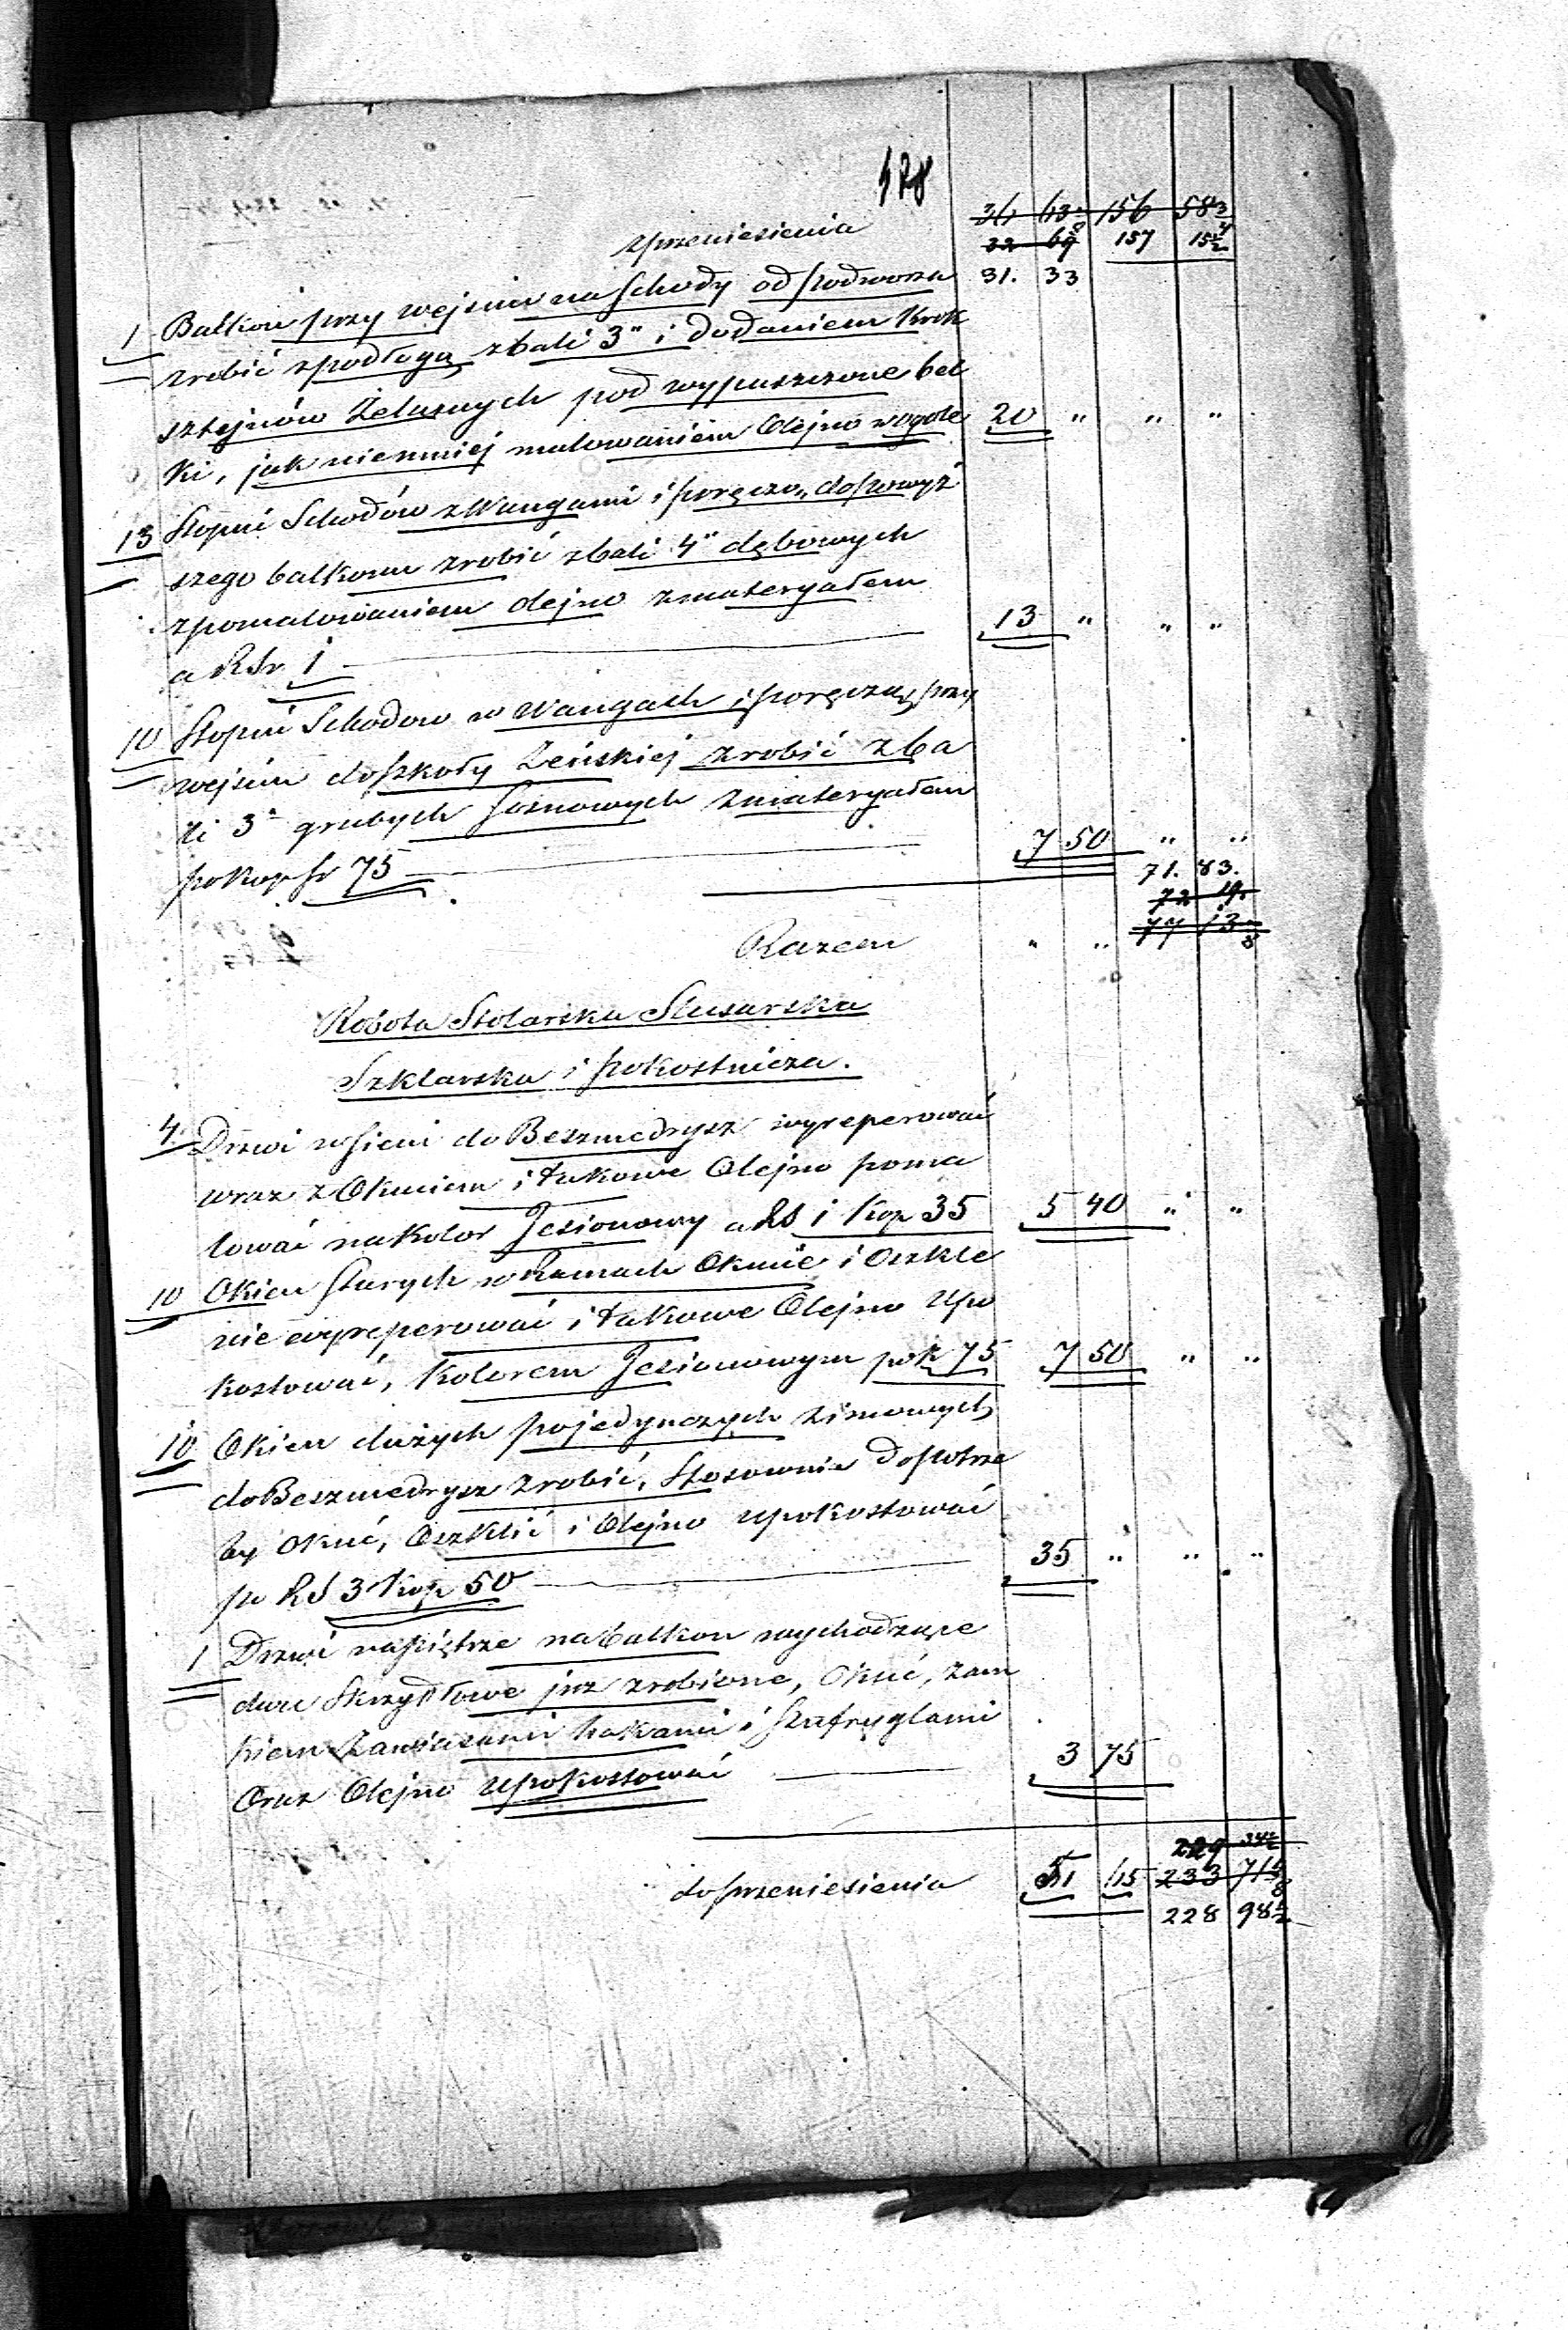 478
zprzeniesienia 36 63 156 58 3/4
32 69 157 15 1/2
31. 33
1 Balkon przy wejściu na Schody od podworza
zrobić zpodłogą zbali 3" i dodaniem Krok
sztejnów Żelaznych pod wypuszczone bel
ki, jak niemniej malowaniem Olejno wogóle 20 " " "
13 Stopni Schodów zWangami i poręczą, dopowyż
szego balkonu zrobić zbali 4" dębowych
zpomalowaniem olejno zmateryałem
a RSr 1 13 " " "
10 Stopni Schodow w Wangach i poręczą, przy
wejściu doszkoły Żeńskiej zrobić zba
li 3" grubych sosnowych zmateryałem
pokop sr 75 7 50 " "
71. 83.
72 19
Razem " " 77 13
Robota Stolarska Slusarska
Szklarska i pokostnicza.
4 Drzwi wsieni do Beszmedrysz wyreperować
wraz z Okuciem i takowe Olejno poma
lować nakolor Jesionowy a RS 1 Kop 35 5 40 " "
10 Okien starych w Ramach Okucie i Oszkle
nie wyreperować i takowe Olejno Upo
kostować, Kolorem Jesionowym pok 75 7 50 " "
10 Okien dużych pojedynczych zimowych
doBeszmedrysz zrobić, Stosownie Dopotrze
by Okuć, Oszklić i Olejno upokostować
po RS 3 Kop 50 35 " " "
1 Drzwi napiętrze nabalkon wychodzące
dwu Skrzydłowe juz zrobione, Okuć, Zam
kiem Zawiasami hakami i szufryglami
Oraz Olejno Upokostować 3 75
229 34 1/2
doprzeniesienia 51 65 233 71 5/8
228 98 1/2